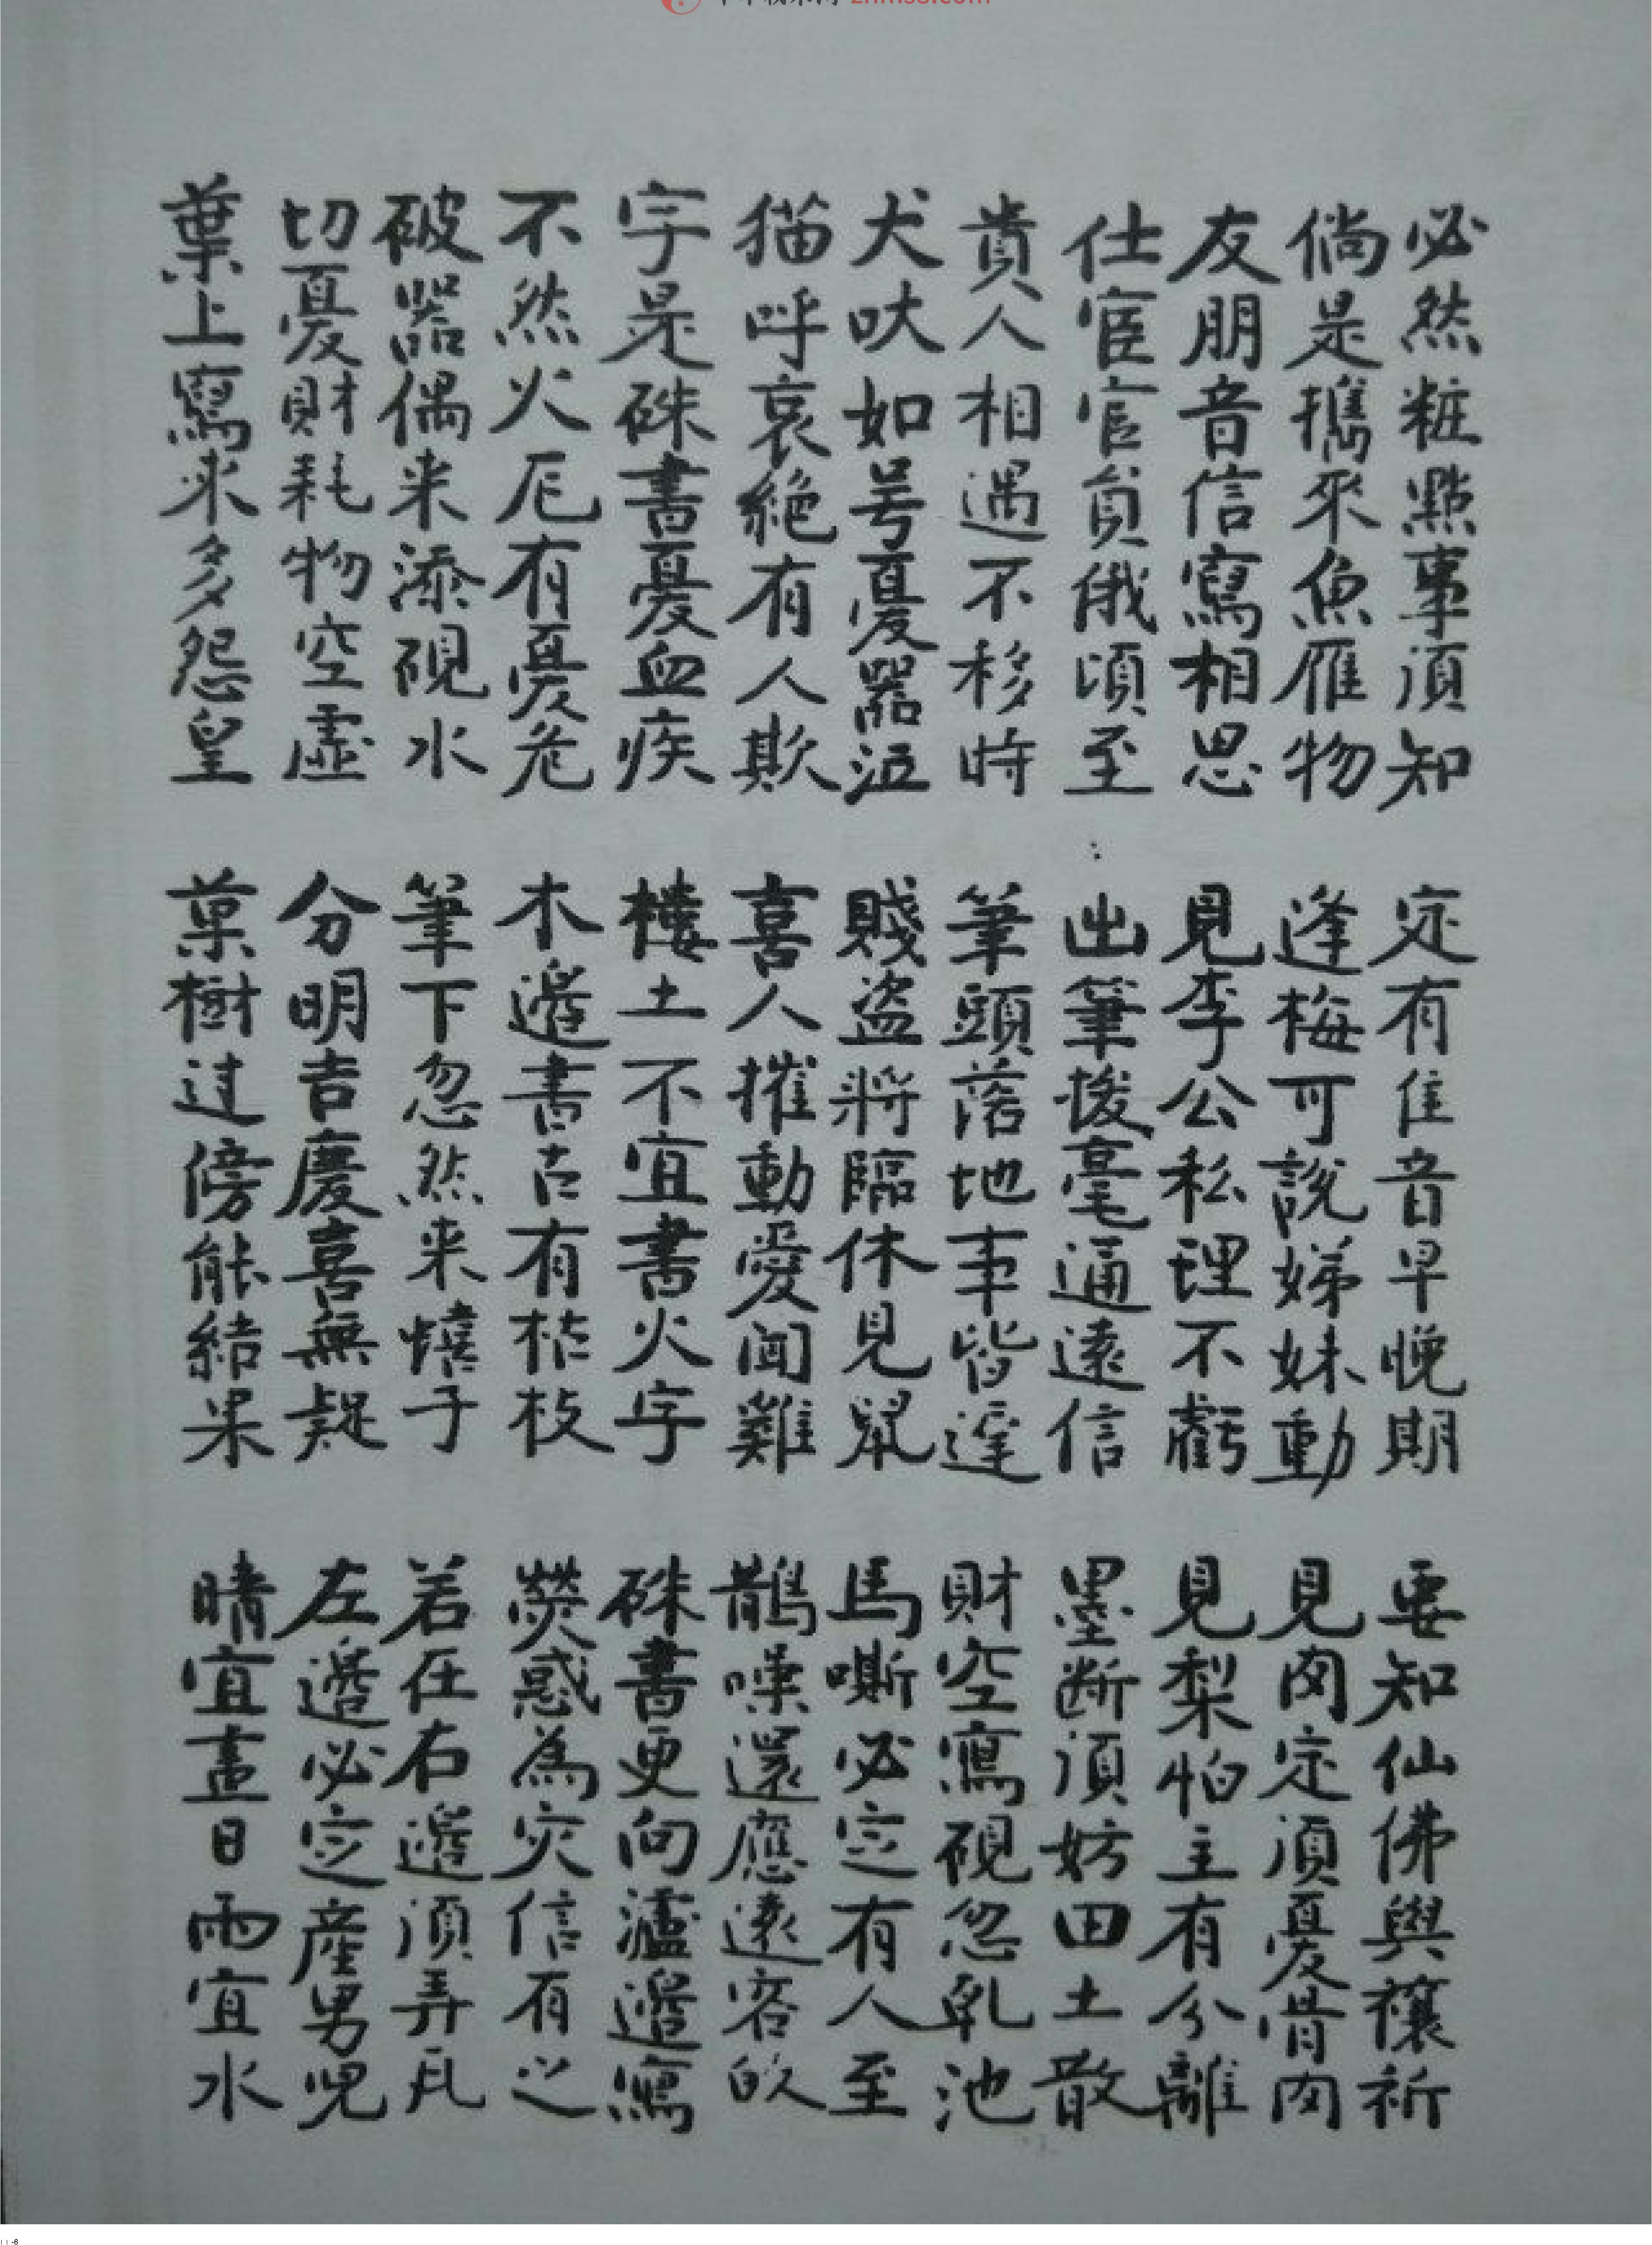 znms8.com
必然粧點事須知
定有佳音早晚期
要知仙佛與禳祈
倘是攜來魚雁物
逢梅可說娣妹動
見肉定須憂骨肉
友朋音信寫相思
見李公私理不虧
見梨怕主有分離
仕宦官員俄頃至
出筆拨毫通遠信
墨断須妨田土散
貴人相遇不移時
筆頭落地事皆遲
財空寫硯忽乳池
犬吠如号憂器泣
賤盜將臨休見鼠
馬嘶必定有人至
猫呼哀絕有人欺
喜人摧動愛闻雞
鵲噪還應遠客的
字是硃書憂血疾
樓土不宜書火字
硃書更向瀘邉寫
不然火厄有憂危
木邉書古有枯枝
熒惑為灾信有之
破器偶来添硯水
筆下忽然来憘子
若在右邉須弄瓦
切憂財耗物空虛
分明吉慶喜無疑
左邉必定産男児
葉上寫來多怨皇
菓樹过傍能結果
晴宜畫日雨宜水